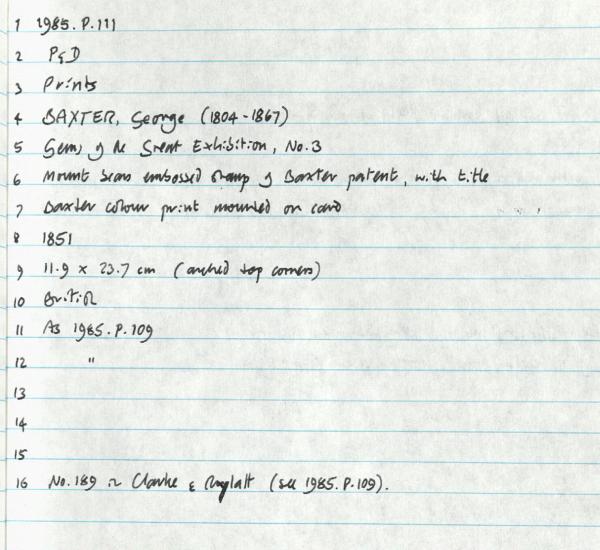 1 1985.P.111
2 P&D
3 Prints
4 BAXTER, George (1804-1867)
5 Gems of the Great Exhibition, No.3
6 Mount bears embossed stamp of Baxter patent, with title
7 Baxter colour print mounted on card
8 1851
9 11.9 x 23.7 cm (arched top corners)
10 British
11 As 1985.P.109
12 "
13
14
15
16 No.189 in Clarke & (see 1985.P.109).